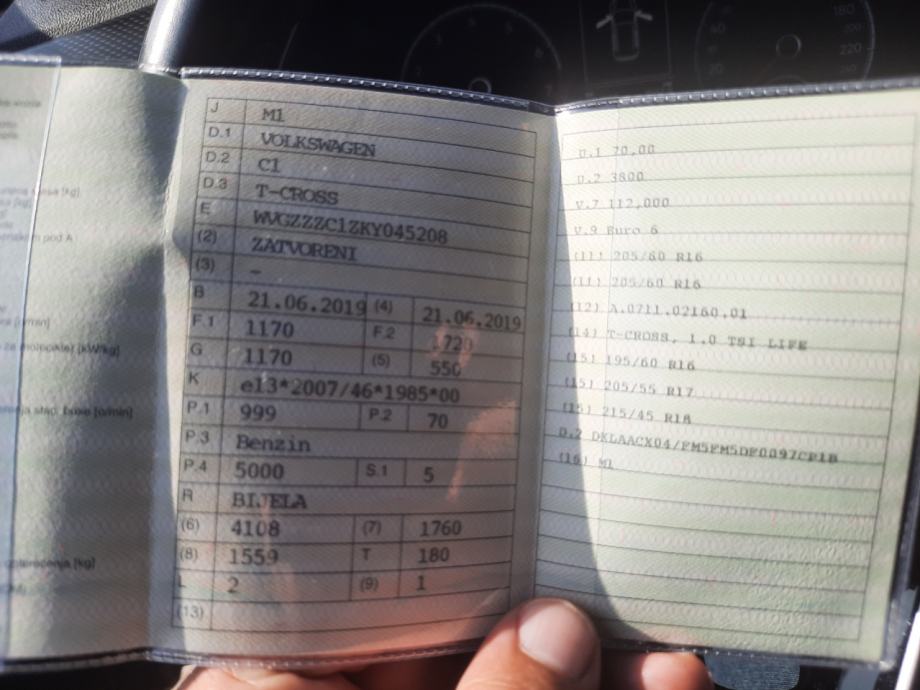 J M1
D.1 VOLKSWAGEN
D.2 C1
D.3 T-CROSS
E WVGZZZC1ZKY045208
(2) ZATVORENI
(3) –
B 21.06.2019 (4) 21.06.2019
F.1 1170 F.2 1720
G 1170 (5) 550
K e13*2007/46*1985*00
P.1 999 P.2 70
P.3 Benzin
P.4 5000 S.1 5
R BIJELA
(6) 4108 (7) 1760
(8) 1559 T 180
L 2 (9) 1
(13)
U.1 70,00
U.2 3800
V.7 112,000
V.9 Euro 6
(11) 205/60 R16
(11) 205/60 R16
(12) A.0711.02160.01
(14) T-CROSS, 1.0 TSI LIFE
(15) 195/60 R16
(15) 205/55 R17
(15) 215/45 R18
D.2 DKLAACX04/FM5FM5DF0097CP1B
(16) M1
180
220